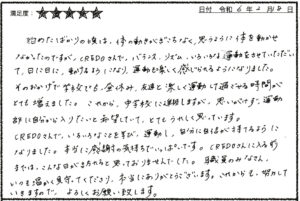 満足度： ★★★★★ 日付 令和 6 年 2 月 8 日
始めたばかりの頃は、体の動きがぎこちなく、思うように体を動かせ
なかったのですが、CREDOさんで、バランス、リズム、いろいろな運動をさせていただいて
、日に日に、動けるようになり、運動も楽しく感じられるようになりました。
そのおかげで学校でも、昼休み、友達と楽しく運動して過ごせる時間が
とても増えました。これから、中学校に進級しますが、思いがけず、運動
部に自分から入りたいと希望していて、とてもうれしく思います。
CREDOさんで、いろいろなことを学び、運動し、自分に自信がもてるように
なりました。本当に感謝の気持ちでいっぱいです。CREDOさんに入る前
までは、こんな日がきれると思っておりませんでした。職員のみなさん、
いつも温かく見守ってくださり、本当にありがとうございます。これからも、努力して
いきますので、よろしくお願い致します。